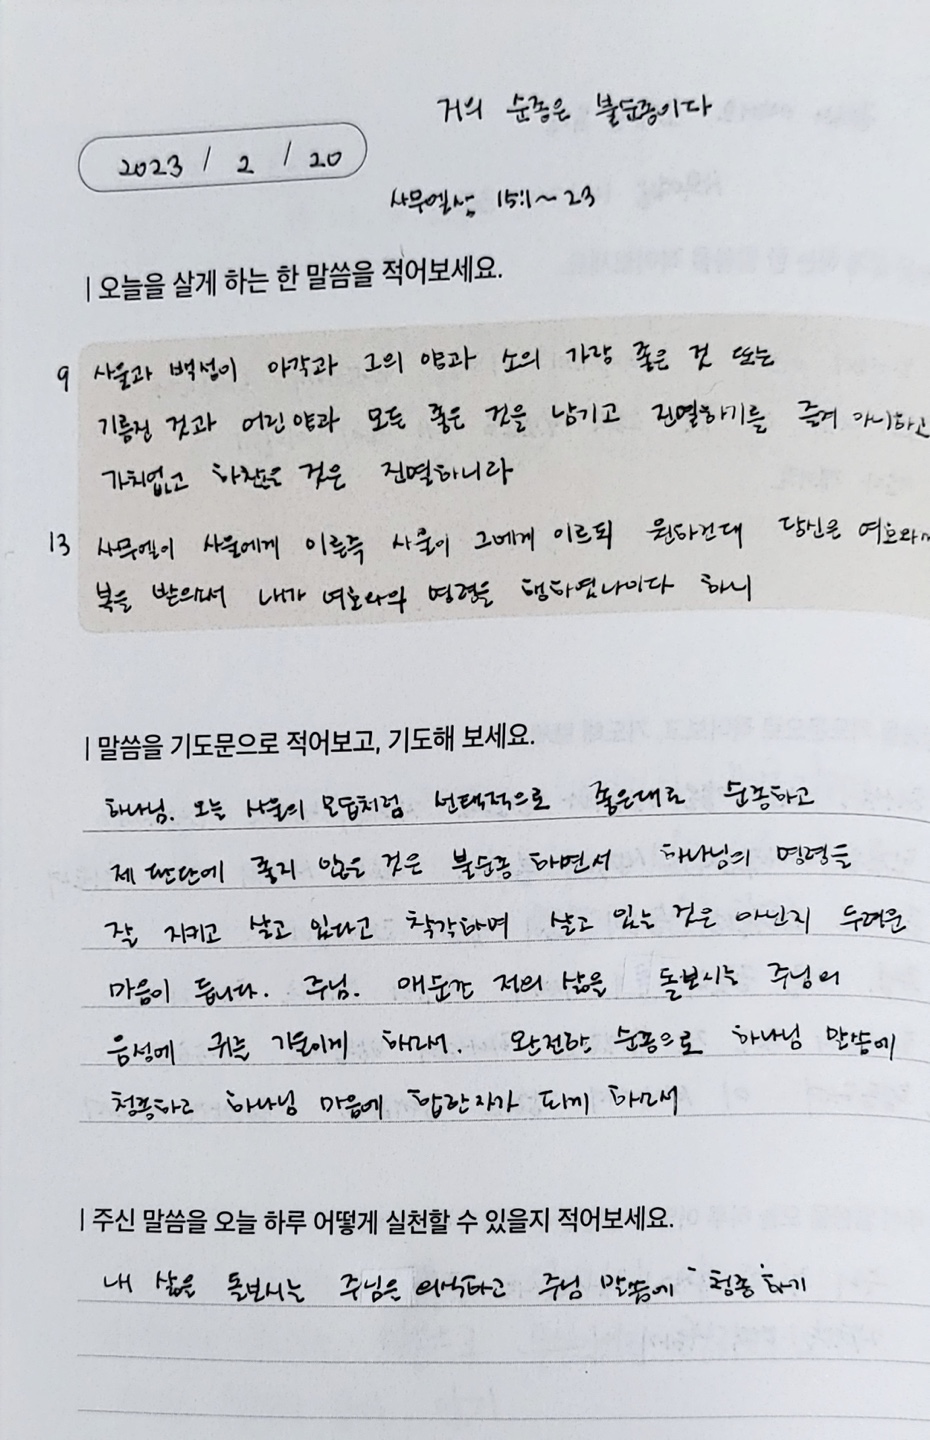 거의 순종은 불순종이다
2023 / 2 / 20
사무엘상 15:1~23
| 오늘을 살게 하는 한 말씀을 적어보세요.
9 사울과 백성이 아각과 그의 양과 소의 가장 좋은 것 또는
기름진 것과 어린 양과 모든 좋은 것을 남기고 진멸하기를 즐겨 아니하고
가치없고 하찮은 것은 진멸하니라
13 사무엘이 사울에게 이른즉 사울이 그에게 이르되 원하건대 당신은 여호와
복을 받으소서 내가 여호와의 명령을 행하였나이다 하니
| 말씀을 기도문으로 적어보고, 기도해 보세요.
하나님. 오늘 사울의 모습처럼 선택적으로 좋은대로 순종하고
제 판단에 좋지 않은 것은 불순종 하면서 하나님의 명령을
잘 지키고 살고 있다고 착각하며 살고 있는 것은 아닌지 두려운
마음이 듭니다. 주님. 매순간 저의 삶을 돌보시는 주님의
음성에 귀를 기울이게 하소서. 완전한 순종으로 하나님 말씀에
청종하고 하나님 마음에 합한 자가 되게 하소서
| 주신 말씀을 오늘 하루 어떻게 실천할 수 있을지 적어보세요.
내 삶을 돌보시는 주님을 의식하고 주님 말씀에 '청종'하기